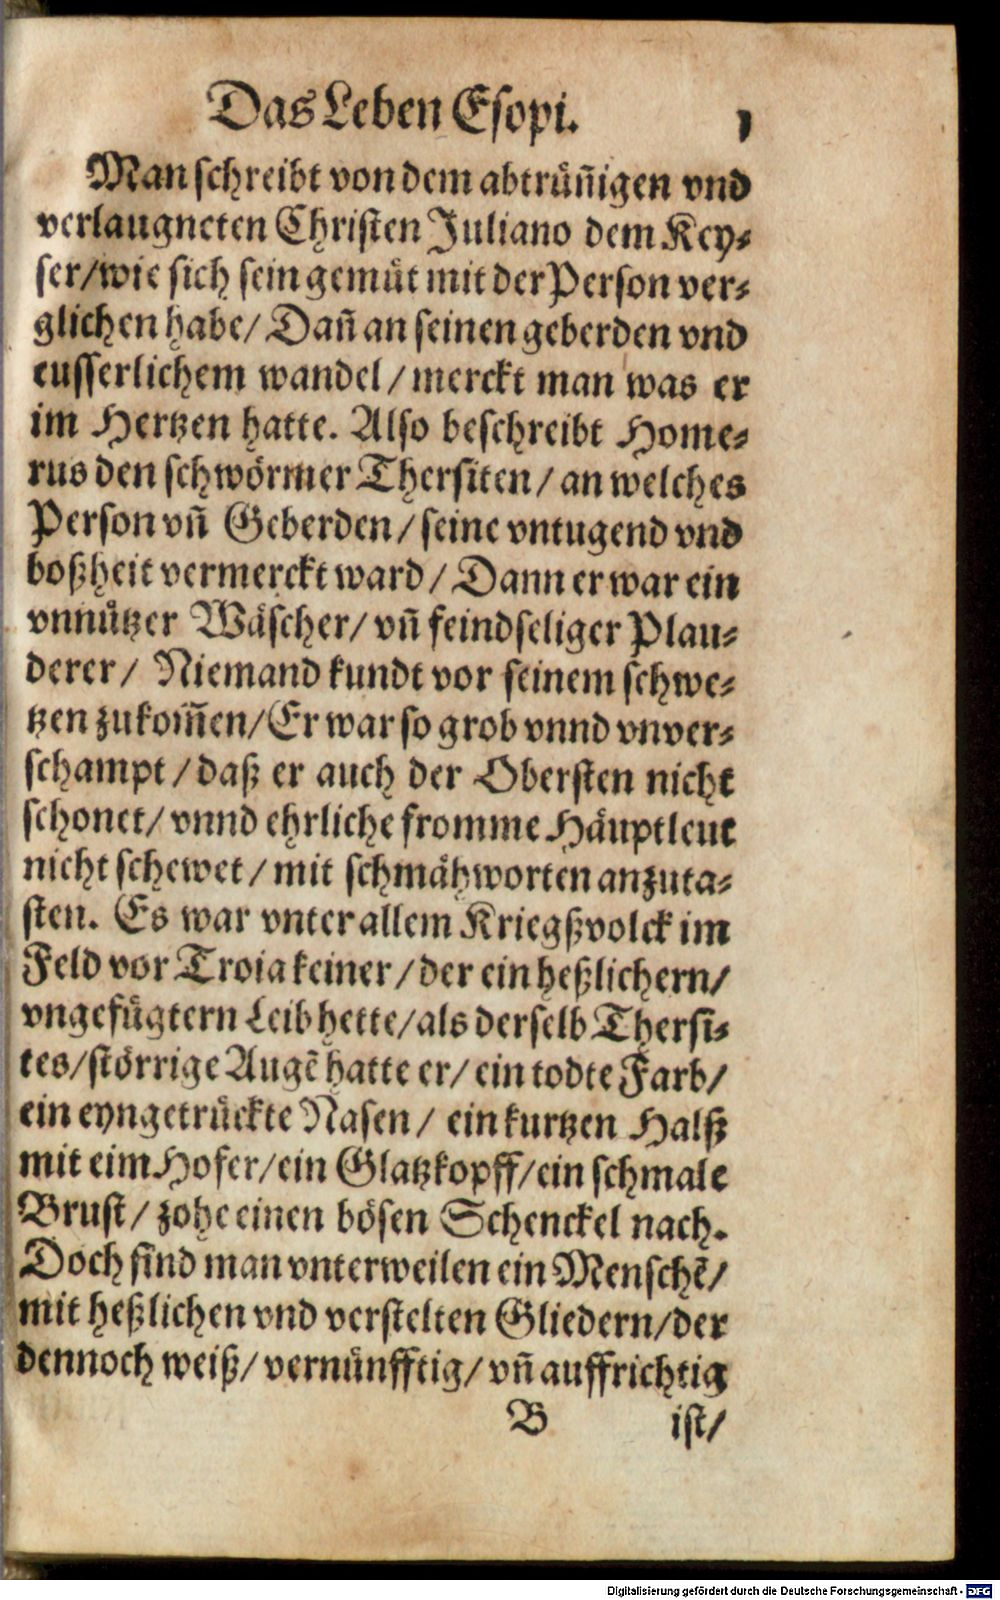 Das Leben Esopi. 1
Man schreibt von dem abtruͤñigen vnd
verlaugneten Christen Juliano dem Key-
ser/wie sich sein gemuͤt mit der Person ver-
glichen habe/ Dañ an seinen geberden vnd
eusserlichem wandel/ merckt man was er
im Hertzen hatte. Also beschreibt Home-
rus den schwoͤrmer Thersiten/ an welches
Person vñ Geberden/ seine vntugend vnd
boßheit vermerckt ward/ Dann er war ein
vnnuͤtzer Waͤscher/ vñ feindseliger Plau-
derer/ Niemand kundt vor seinem schwe-
tzen zukom̃en/ Er war so grob vnnd vnver-
schampt/ daß er auch der Obersten nicht
schonet/ vnnd ehrliche fromme Haͤuptleut
nicht schewet/ mit schmaͤhworten anzuta-
sten. Es war vnter allem Kriegßvolck im
Feld vor Troia keiner/ der ein heßlichern/
vngefuͤgtern Leib hette/ als derselb Thersi-
tes/ stoͤrrige Augẽ hatte er/ ein todte Farb/
ein eyngetruͤckte Nasen/ ein kurtzen Halß
mit eim Hofer/ ein Glatzkopff/ ein schmale
Brust/ zohe einen boͤsen Schenckel nach.
Doch find man vnterweilen ein Menschẽ/
mit heßlichen vnd verstelten Gliedern/ der
dennoch weiß/ vernuͤnfftig/ vñ auffrichtig
B ist/
Digitalisierung gefördert durch die Deutsche Forschungsgemeinschaft - DFG